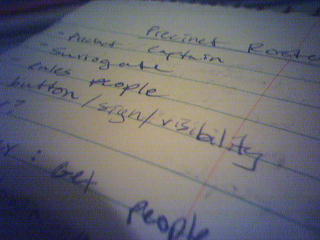 Precinct
- Precinct Captain
- Surrogate
- rules people
button/sign/visibility
?
: Get people